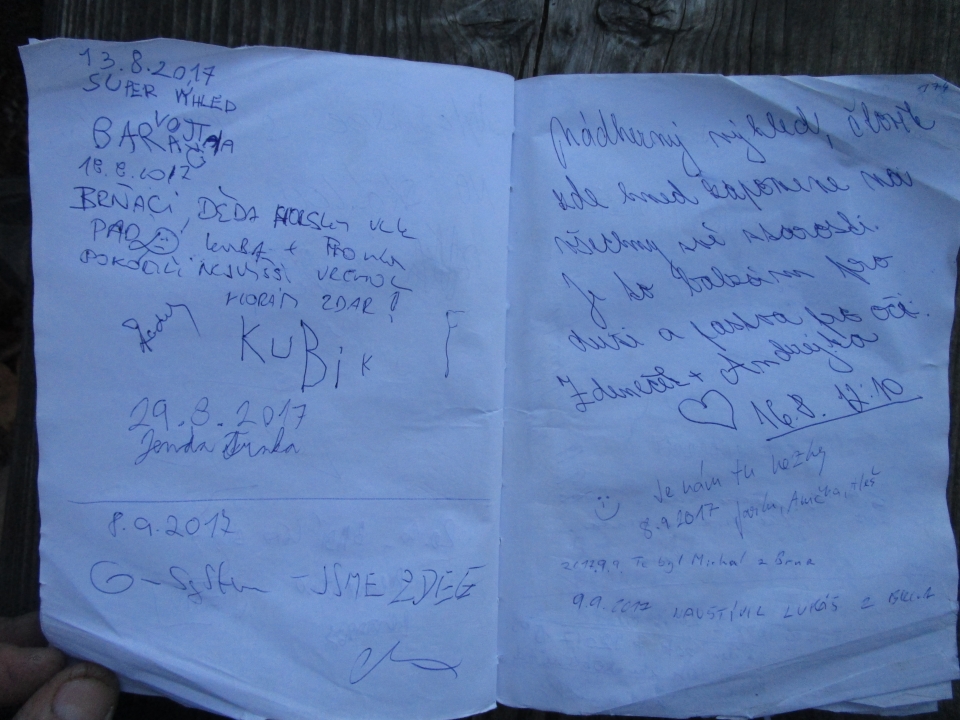 13.8.2017
SUPER VÝHLED
VOJTA
BARA
18.8.2017
BRŇÁCI, DĚDA VLK
PAD KUBA +
POKOŘILI NEJVYŠŠÍ VRCHOL
HORÁM ZDAR!
KUBIK
29.8.2017
Jenda
8.9.2017
G-System - JSME ZDE
174
Nádherný výhled, člověk
zde hned zapomene na
všechny své starosti.
Je to balzám pro
duši a pastva pro oči.
Zdeneček + Andrejka
16.8. 12:10
Je nám tu hezky
8.9.2017
2017.9.9. Tu byl Michal z Brna
9.9.2017 LUKÁŠ Z BRNA